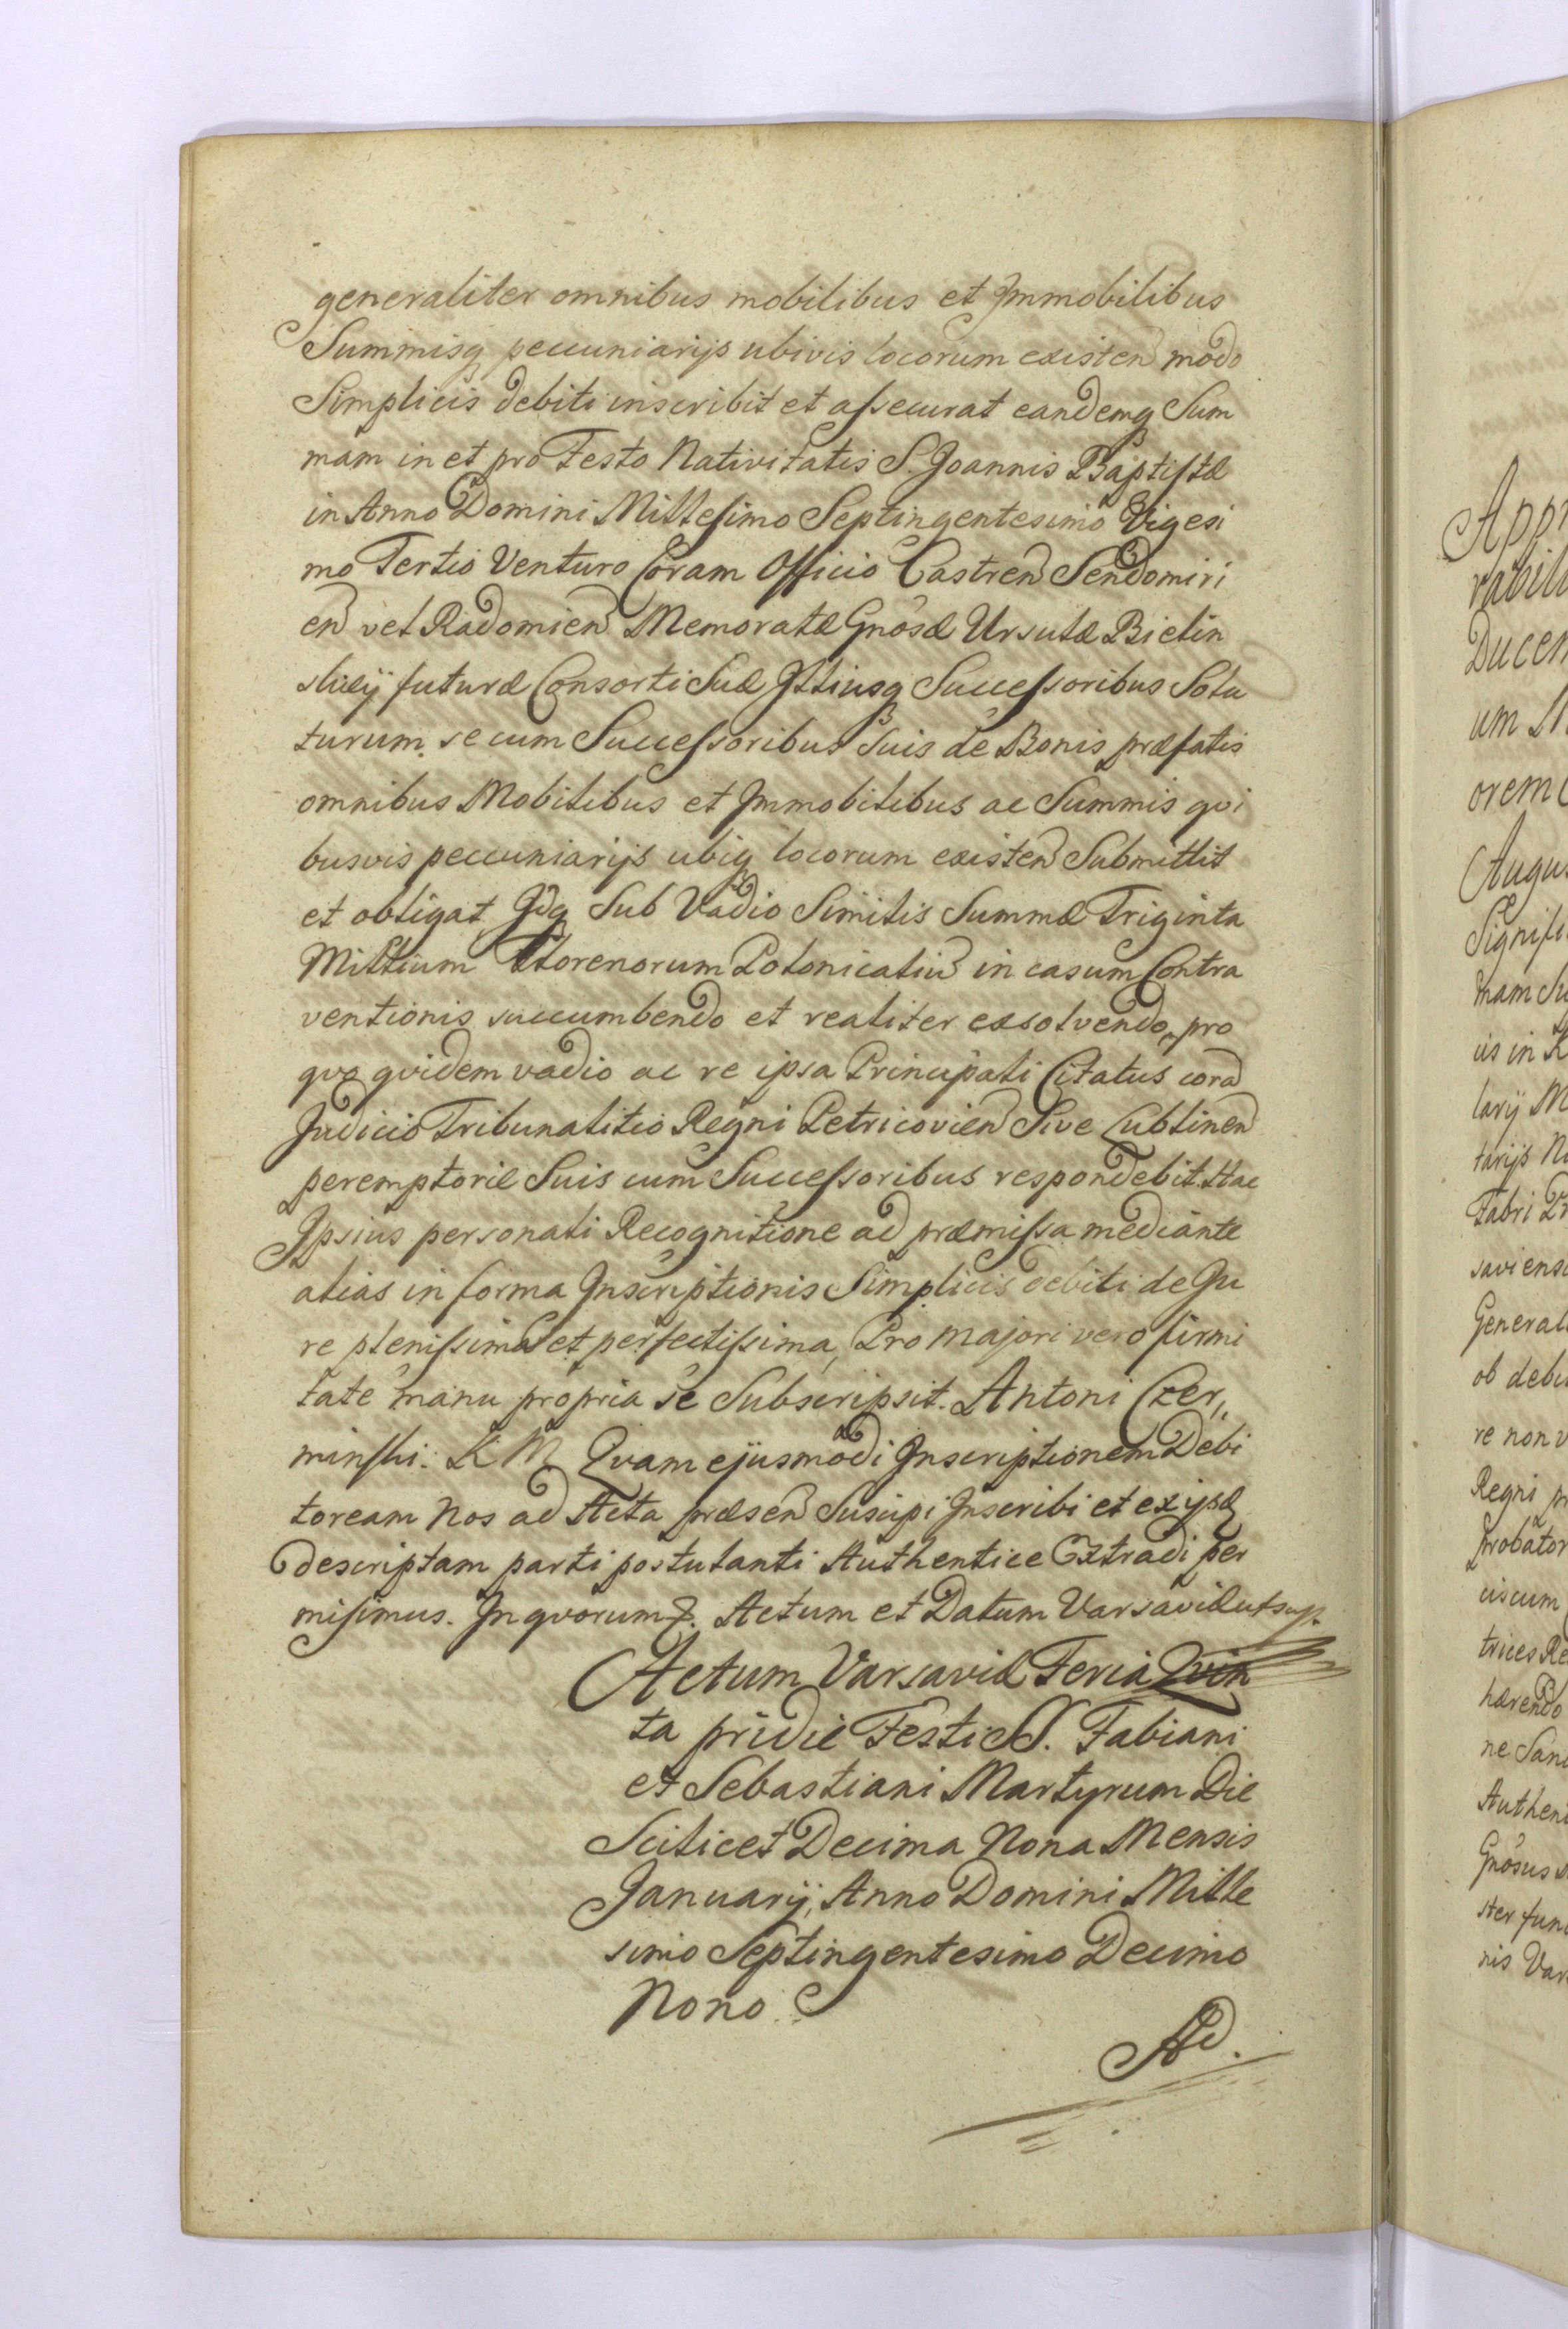 generaliter omnibus mobilibus et Immobilibus
Summisq pecuniarijs ubivis locorum existen modo
Simplicis debiti inscribit et assecurat eandemq Sum
mam in et pro Festo Nativitatis S. Joannis Baptistæ
in Anno Domini Millesimo Septingentesimo Vigesi
mo Tertio Venturo Coram Officio Castren Sendomiri
en vel Radomien Memoratæ Gnosæ Ursulæ Bielin
skiey futuræ Consorti Suæ Illiusq Successoribus Solu
turum se cum Successoribus Suis de Bonis præfatis
omnibus Mobilibus et Immobilibus ac Summis qvi
busvis pecuniarijs ubiq locorum existen Submittit
et obligat Idq Sub Vadio Similis Summæ Triginta
Millium Florenorum Polonicaliu in casum Contra
ventionis succumbendo et realiter exsolvendo, pro
qvo qvidem vadio ac re ipsa Principali Citatus cora
Judicio Tribunalitio Regni Petricovien Sive Lublinen
peremptorie Suis cum Successoribus respondebit. Hac
Ipsius personali Recognitione ad præmissa mediante
alias in forma Inscriptionis Simplicis debiti de Ju
re plenissima et perfectissima, Pro majori vero firmi
tate manu propria se Subscripsit. Antoni Czer,,
minski. K M Qvam ejusmodi Inscriptionem Debi
toream Nos ad Acta præsen Suscipi Inscribi et ex ijsd
descriptam parti postulanti Authentice Extradi per
misimus. In qvorum &. Actum et Datum Varsaviæ ut sup.
Actum Varsaviæ Feria Qvin
ta pridie Festi SS. Fabiani
et Sebastiani Martyrum Die
Scilicet Decima Nona Mensis
Januarij, Anno Domini Mille
simo Septingentesimo Decimo
Nono.
Ad.
Ducen
um
orem
Augus
mam Su
iis in
larij M
tarijs
Fabri
Generali
ob debi
re non v
Regni
probator
cis cum
trices Re
hærendo
ne San
Authen
Gnosus
ster fun
nis Var